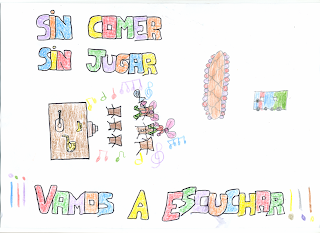 SIN COMER
SIN JUGAR
¡¡¡VAMOS A ESCUCHAR!!!